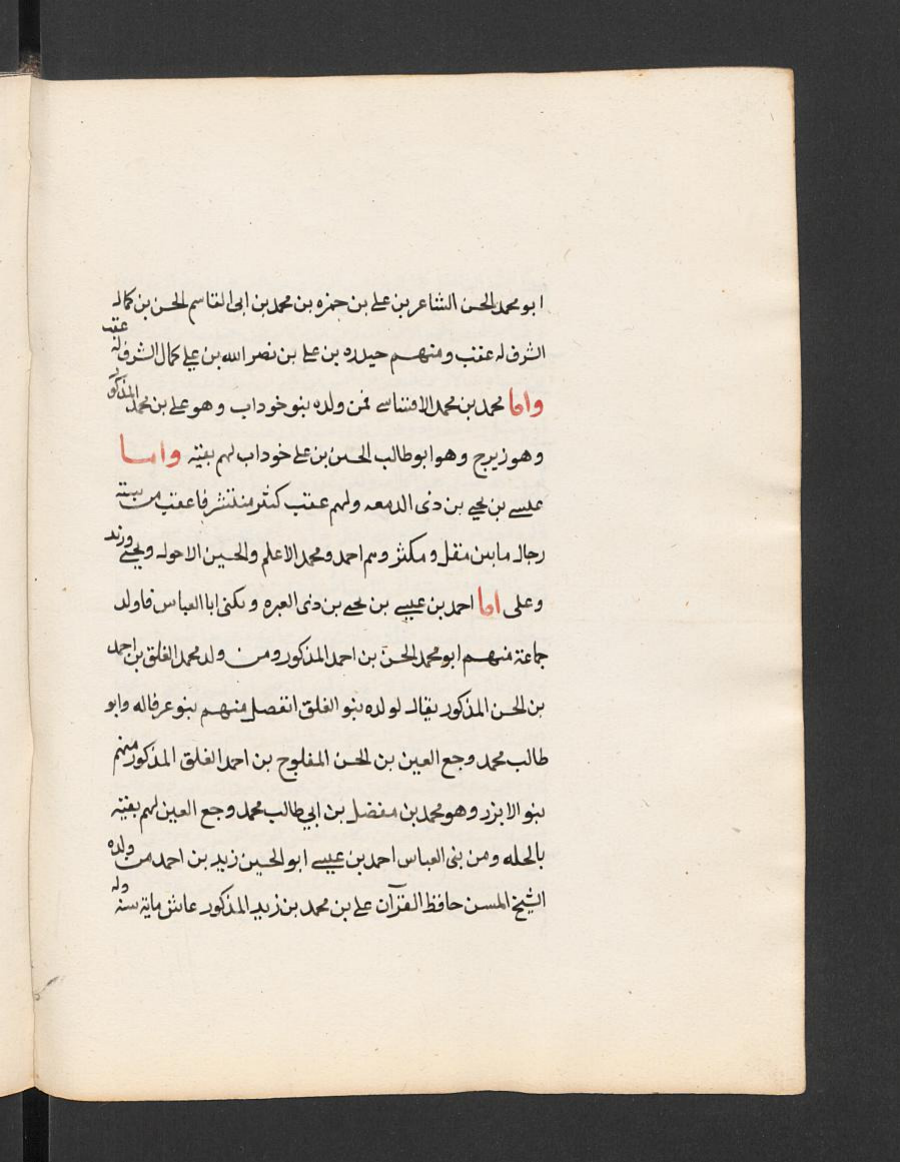 ابو محمد الحسن الشاعر بن علي بن حمزه بن محمد بن ابى القاسم الحسن بن كمال
الشرف له عقب ومنهم حيدره بن علي بن نصر الله بن علي كمال الشرف له عقب
واما محمد بن محمد الاقتاسے فمن ولده بنو خوداب وهو على بن محمد المذكور
وهو زيرج وهو ابو طالب الحسن بن على خوداب لهم بقيه واما
عيسے بن يحيے بن ذى الدمعه ولهم عقب كثير منتشر فاعقب من ستة
رجال ما بين مقل ومكثر وهم احمد ومحمد الاعلم والحسين الاحول ويحيے وزيد
وعلى اما احمد بن عيسے بن يحيے بن ذى العبره ويكنى ابا العباس فاولد
جماعة منهم ابو محمد الحسن بن احمد المذكور ومن ولد محمد الغلق بن احمد
بن الحسن المذكور يقال لولده بنو الغلق انفصل منهم بنو عرفاله وابو
طالب محمد وجع العين بن الحسن المفلوج بن احمد الغلق المذكور منهم
بنو الابزر وهو محمد بن مفضل بن ابي طالب محمد وجع العين لهم بقيه
بالحله ومن بنى العباس احمد بن عيسے ابو الحسين زيد بن احمد من ولده
الشيخ المسن حافظ القرآن على بن محمد بن زيد المذكور عاش ماية سنه وله